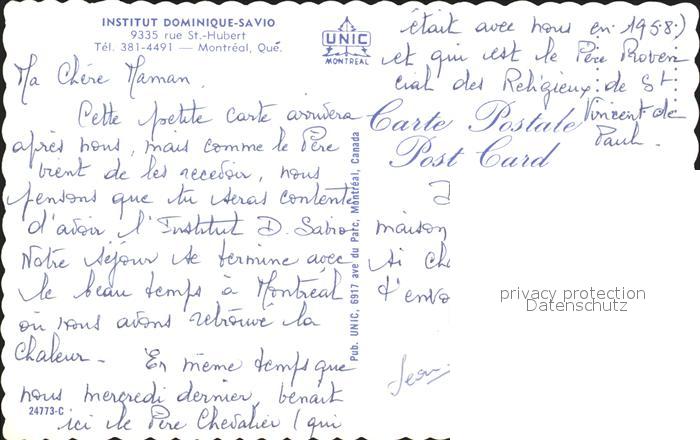 INSTITUT DOMINIQUE-SAVIO
9335 rue St.-Hubert
Tél. 381-4491 — Montréal, Qué.
UNIC
MONTREAL
Ma Chère Maman.
Cette petite carte arrivera
après nous, mais comme le Père
vient de les recevoir, nous
pensons que tu seras contente
d'avoir l'Institut D. Savio
Notre séjour se termine avec
le beau temps à Montréal
où nous avons retrouvé la
chaleur - En même temps que
nous mercredi dernier, venait
24773-C
ici le Père Chevalier (qui
Pub. UNIC, 6917 ave du Parc, Montréal, Canada
était avec nous en 1958)
et qui est le Père Proven
cial des Religieux de St
Vincent de
Paul.
Carte Postale
Post Card
maison
si ch
t'envo
Jean
privacy protection
Datenschutz